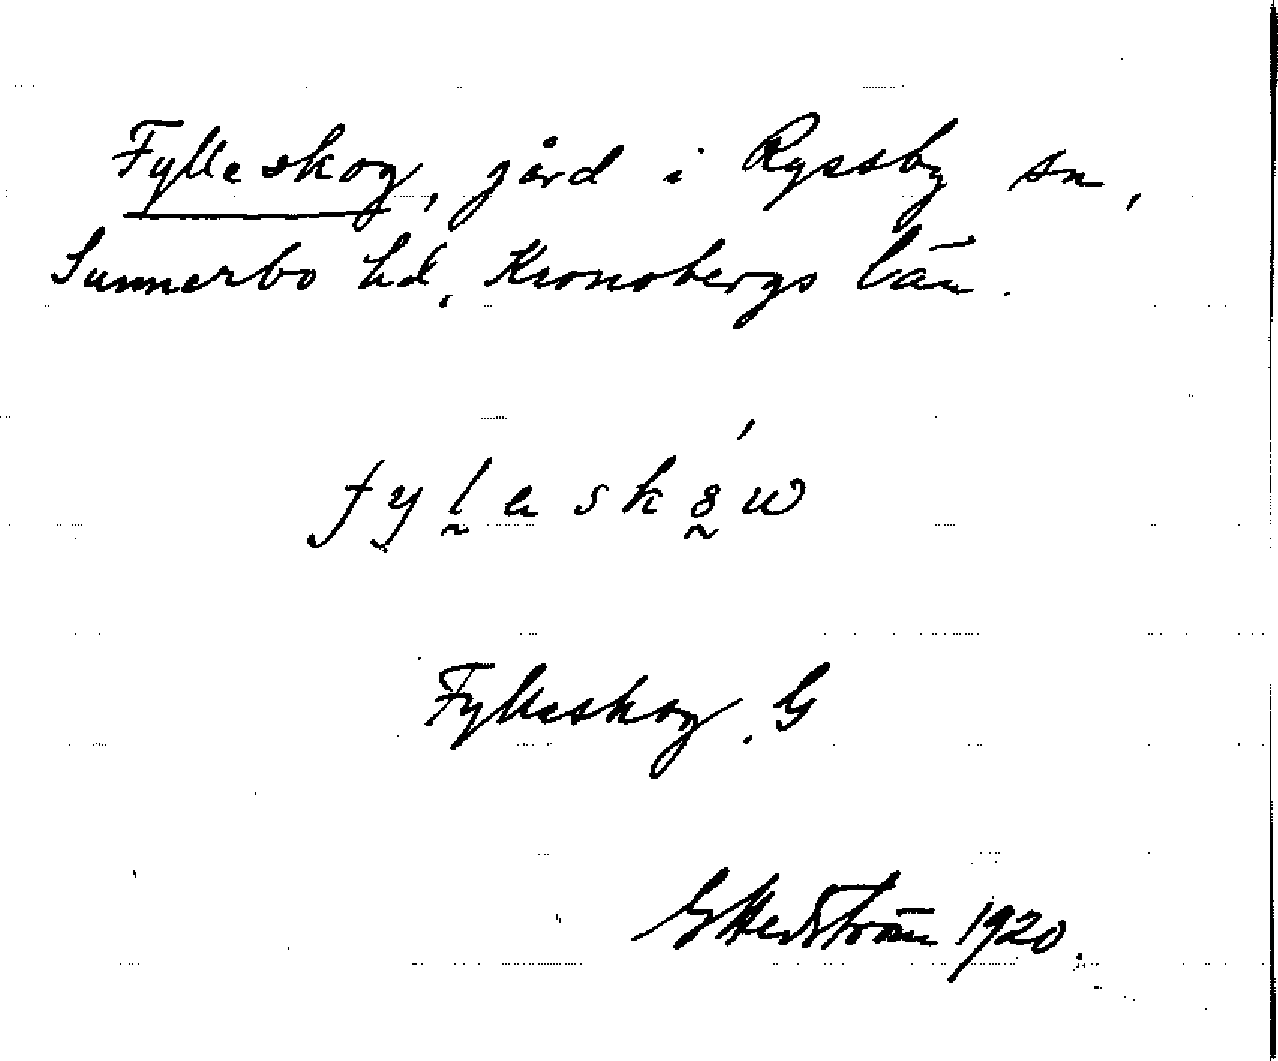 Fylleskog, gård i Ryssby sn,
Sunnerbo hd, Kronobergs län.
fylasków
Fylleskog. G
G Hedström 1920.